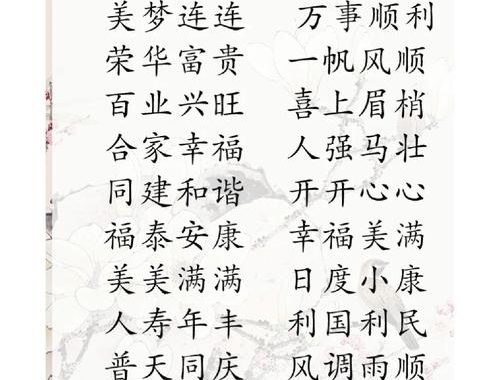 美梦连连 万事顺利
荣华富贵 一帆风顺
百业兴旺 喜上眉梢
合家幸福 人强马壮
同建和谐 开开心心
福泰安康 幸福美满
美美满满 日度小康
人寿年丰 利国利民
普天同庆 风调雨顺